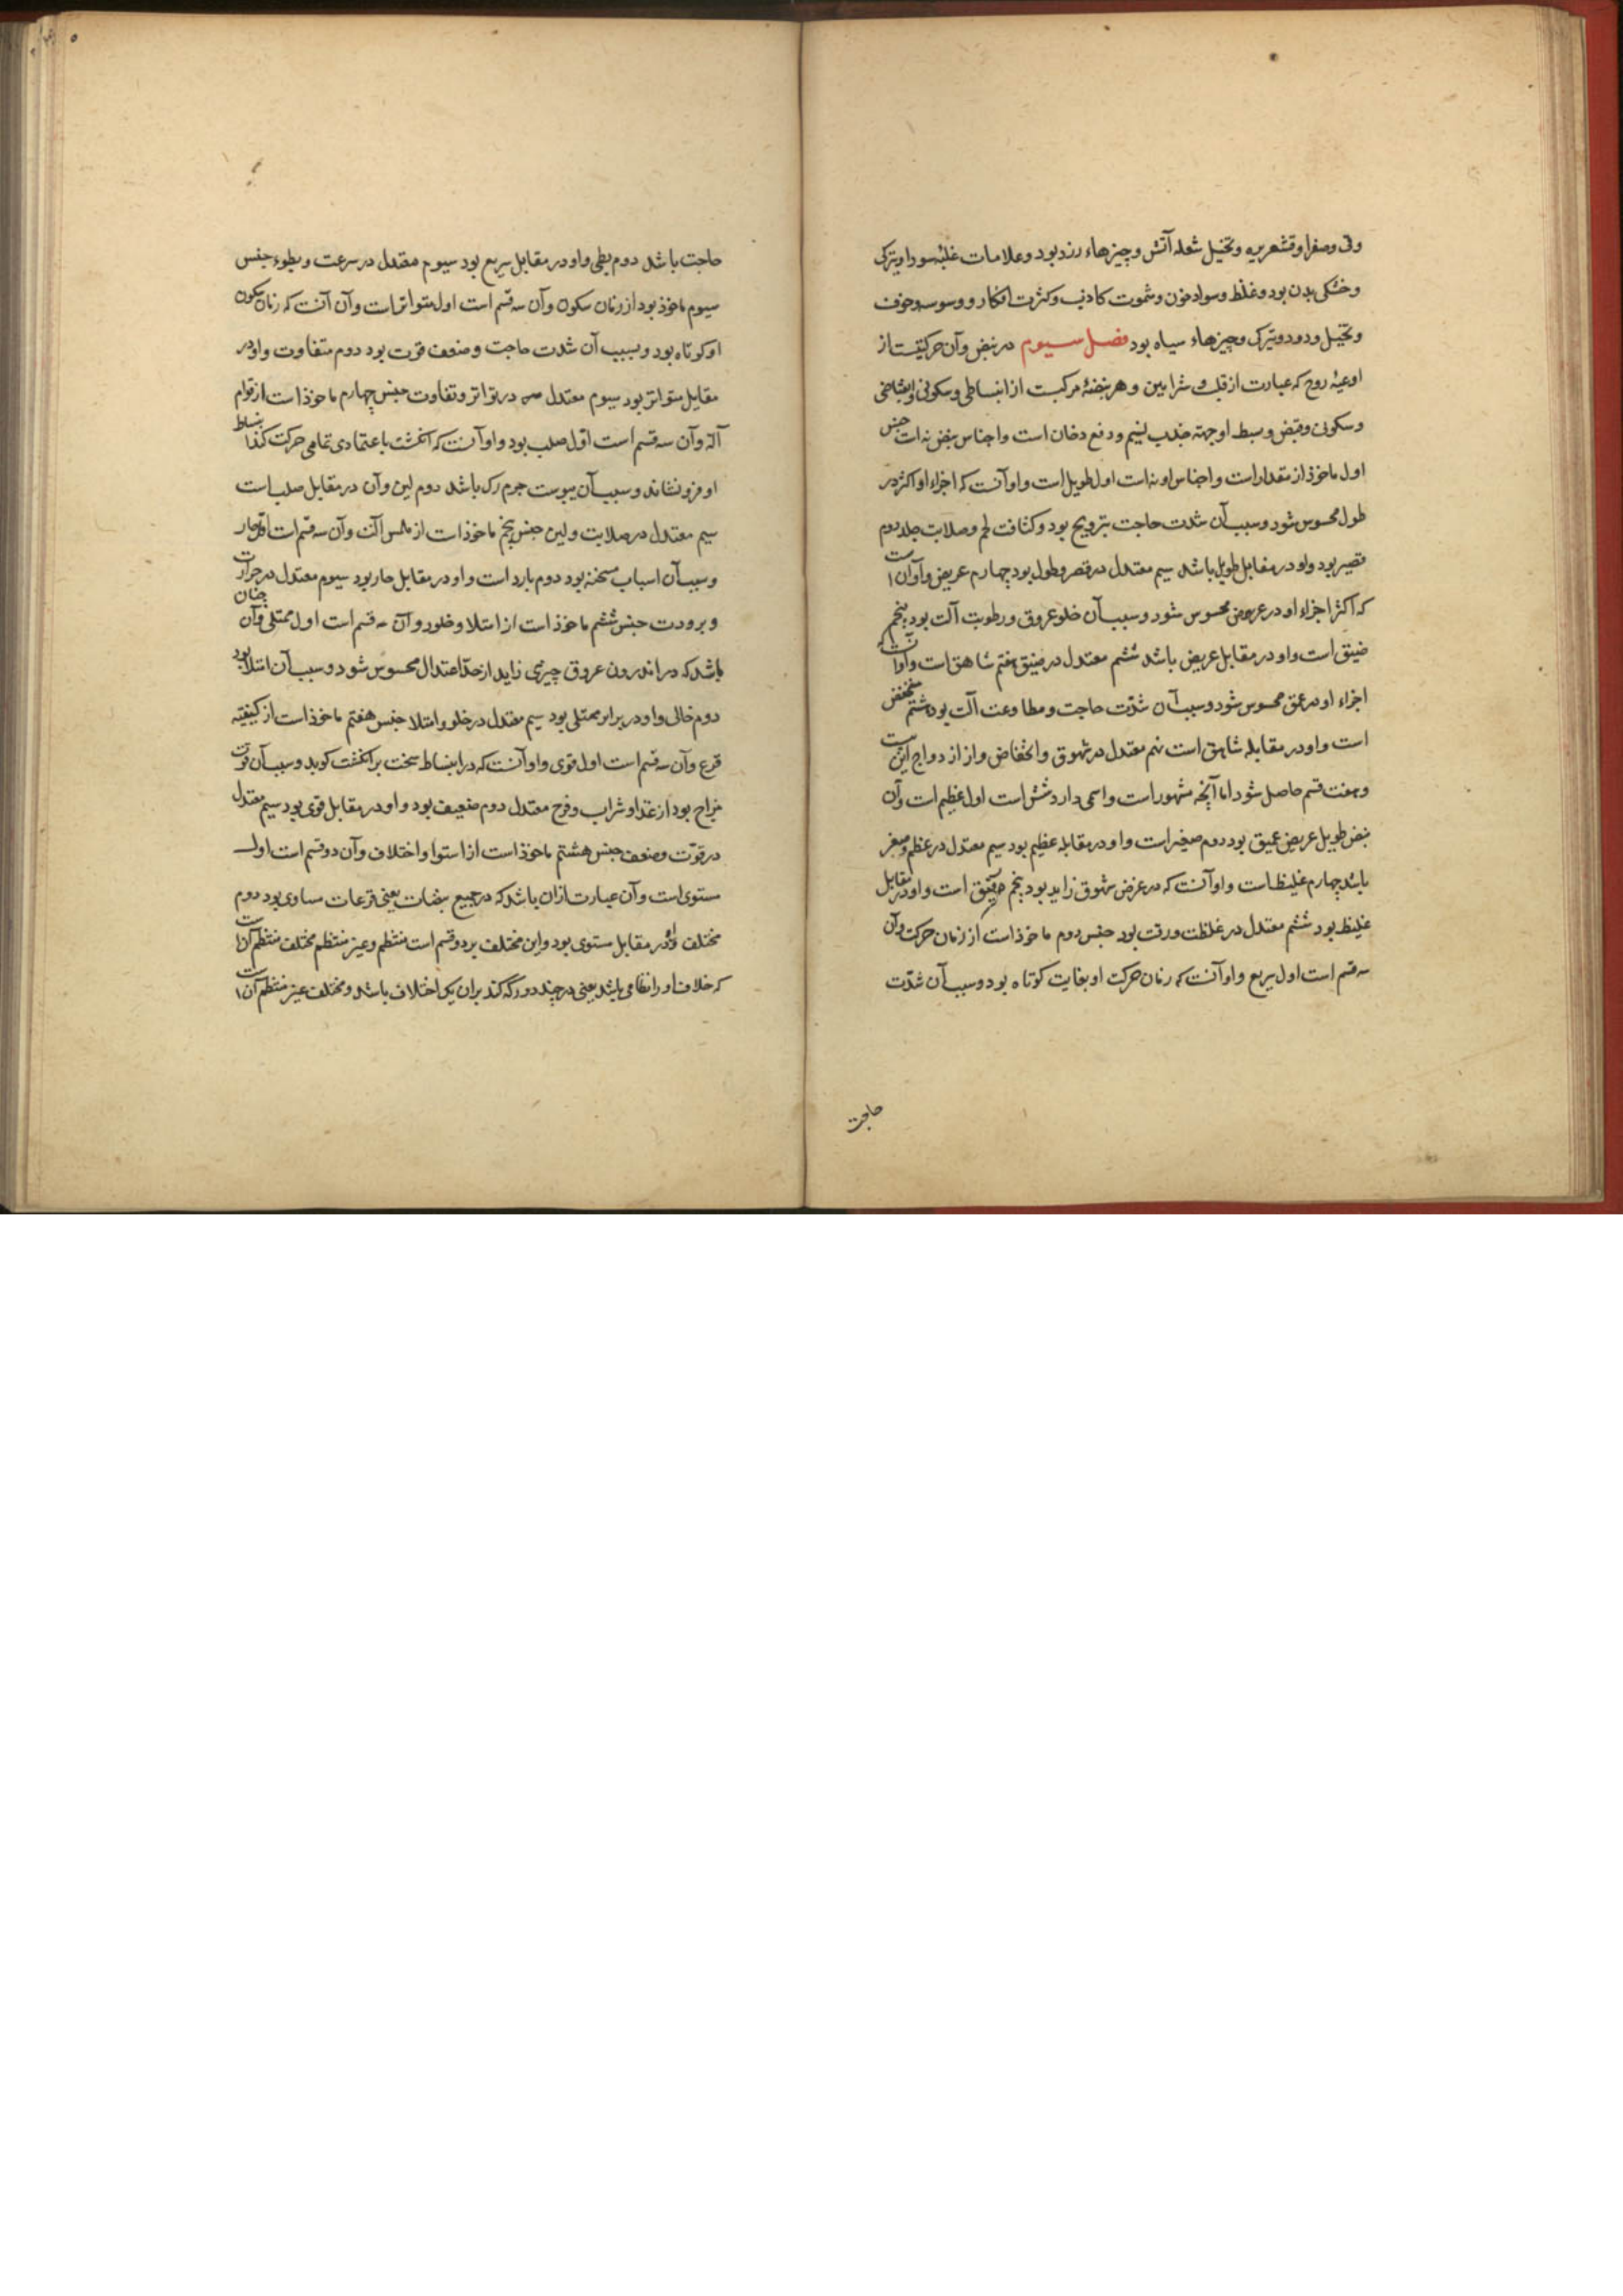 وقی وصفرا وقشعریره وتخیل شعله آتش وچیزهاء زرد بود وعلامات غلبۀ سودا وتیرکی
وخشکی بدن بود وغلظ وسواد خون وشهوت کاذب وکثرت افکار ووسوسه وخوف
وتخیل ودود وتیرکی وچیزهاء سیاه بود فصل سیوم در نبض وآن حرکتیست از
اوعیۀ روح که عبارت از قلب وشرایین وهر نبضۀ مرکبست از انبساطی وسکونی وانقباضی
وسکونی وقبض وبسط او جهته جذب نسیم ودفع دخان است واجناس نبض نه است جنس
اول ماخوذ از مقدار است واجناس او نه است اول طویل است واو آنست که اجزاء او اکثر در
طول محسوس شود وسبب آن شدت حاجت بترویح بود وکثافت لحم وصلابت جلد دوم
قصیر بود واو در مقابل طویل باشد سیم معتدل در قصر وطول بود چهارم عریض وآو آن است
که اکثر اجزاء او در عرض محسوس شود وسبب آن خلو عروق ورطوبت آلت بود پنجم
ضیق است واو در مقابل عریض باشد ششم معتدل در ضیق هفتم شاهق است وآو آنست که
اجزاء او در عمق محسوس شود وسبب آن شدّت حاجت ومطاوعت آلت بود هشتم منخفض
است واو در مقابله شاهق است نهم معتدل در شهوق وانخفاض واز ازدواج این بیست
وهفت قسم حاصل شود اما آنچه مشهور است واسمی دارد شش است اول عظیم است وآن
نبض طویل عریض عمیق بود دوم صغیر است واو در مقابله عظیم بود سیم معتدل در عظم وصغر
باشد چهارم غلیظ است واو آنست که در عرض وشهوق زاید بود پنجم دقیق است واو در مقابل
غلیظ بود ششم معتدل در غلظت ورقت بود جنس دوم ماخوذ است از زمان حرکت وآن
سه قسم است اول سریع واو آنست که زمان حرکت او بغایت کوتاه بود وسبب آن شدّت
حاجت
حاجت باشد دوم بطی واو در مقابل سریع بود سیوم معتدل در سرعت وبطوء جنس
سیوم ماخوذ بود از زمان سکون وآن سه قسم است اول متواتر است وآن آنست که زمان سکون
او کوتاه بود وسبب آن شدت حاجت وضعف قوت بود دوم متفاوت واو در
مقابل متواتر بود سیوم معتدل در تواتر وتفاوت جنس چهارم ماخوذ است از قوام
آلة وآن سه قسم است اوّل صلب بود واو آنست که انکشت باعتمادی تمامی حرکت انبساط
او فرو نشاند وسبب آن یبوست جرم رک باشد دوم لین وآن در مقابل صلب است
سیم معتدل در صلابت ولین جنس پنجم ماخوذ است از ملمس آلت وآن سه قسم است اوّل حار
وسبب آن اسباب مسخنه بود دوم بارد است واو در مقابل حار بود سیوم معتدل در حرارت
وبرودت جنس ششم ماخوذ است از امتلا وخلو وآن سه قسم است اول ممتلی وآن چنان
باشد که در اندرون عروق چیزی زاید از حدّ اعتدال محسوس شود وسبب آن امتلا بود
دوم خالی واو در برابر ممتلی بود سیم معتدل در خلو وامتلا جنس هفتم ماخوذ است از کیفیة
قرع وآن سه قسم است اول قوی واو آنست که در انبساط سخت بر انکشت کوبد وسبب آن قوت
مزاج بود از غذا وشراب وفرح معتدل دوم ضعیف بود واو در مقابل قوی بود سیم معتدل
در قوّت وضعف جنس هشتم ماخوذ است از استوا واختلاف وآن دو قسم است اول
مستوی است وآن عبارت از ان باشد که در جمیع نبضات یعنی قرعات مساوی بود دوم
مختلف واو در مقابل مستوی بود واین مختلف بر دو قسم است منتظم وغیر منتظم مختلف منتظم آن است
که خلاف او را نظامی باشد یعنی در چند دور که کند بران یک اختلاف باشد ومختلف غیر منتظم آن است